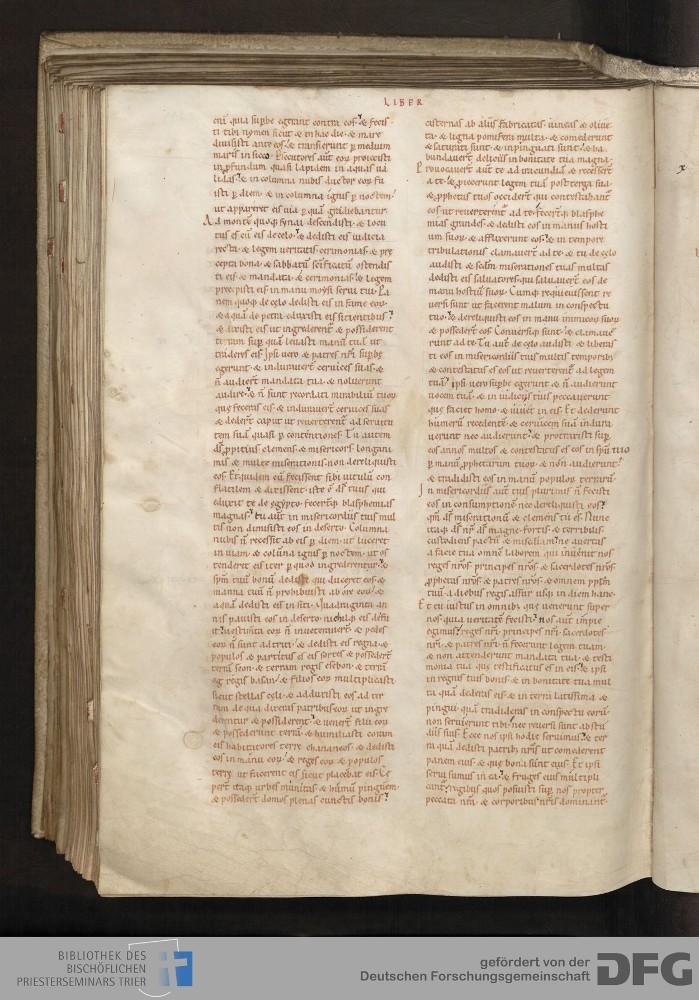 LIBER
eni quia supbe egerant contra eos. & fecis
ti tibi nomen sicut & in hac die. & mare
divisisti ante eos. & transierunt p medium
maris in sicco. psecutores aut eoꝝ proiecisti
in pfundum quasi lapidem in aquas va
lidas. & in columna nubis ductor eoꝝ fu
isti p diem. & in columna ignis p noctem.
ut appareret eis via p quā gradiebantur.
Ad monte quoq; synai descendisti. & locu
tus es cū eis de celo. & dedisti eis iudicia
recta. & legem veritatis. cerimonias. & pre
cepta bona. & sabbatū scificatū ostendis
ti eis. & mandata. & cerimonias. & legem
precepisti eis in manu moysi servi tui. Pa
nem quoq; de celo dedisti eis in fame eoꝝ.
& aquā de petra eduxisti eis sitientibus.
& dixisti eis ut ingrederent & possiderent
terram sup quā levasti manū tuā ut
traderes eis. Ipsi vero & patres nri supbe
egerunt. & induraverт cervices suas. &
n̄ audierт mandata tua. & noluerunt
audire. & n̄ sunt recordati mirabiliū tuoꝝ
quę feceras eis. & induraverт cervices suas
& dederт caput ut reverterentr ad servitu
tem suā quasi p contentionem. Tu autem
ds ppitius clemens & misericors. longani
mis & multe miserationis. non dereliquisti
eos. Et quidem cū fecissent sibi vitulū con
flatilem & dixissent. iste ē ds tuus qui
eduxit te de egypto. feceruntq; blasphemias
magnas. tu aut in misericordiis tuis mul
tis non dimisisti eos in deserto. Columna
nubis n̄ recessit ab eis p diem. ut duceret
in viam. & colūna ignis p noctem. ut os
tenderet eis iter p quod ingrederentur. &
spm tuū bonū dedisti qui doceret eos. &
manna tuū n̄ prohibuisti ab ore eoꝝ. &
aquā dedisti eis in siti. Quadraginta an
nis pavisti eos in deserto. nichilq; eis defu
it. vestimta eoꝝ n̄ inveteraverт. & pedes
eoꝝ n̄ sunt adtriti. & dedisti eis regna. &
populos & partitus es eis sortes. & possederт
terrā seon. & terram regis esebon. & terrā
og regis basan. & filios eoꝝ multiplicasti
sicut stellas celi. & adduxisti eos ad ter
ram de qua dixeras patribus eoꝝ ut ingre
derentur & possiderent. & venerт filii eoꝝ
& possederunt terrā. & humiliasti coram
eis habitatores terre chananeos. & dedisti
eos in manu eoꝝ. & reges eoꝝ & populos
terre ut facerent eis sicut placebat eis. Ce
perт itaq; urbes munitas & humū pinguem.
& possederт domos plenas cunctis bonis.
cisternas ab aliis fabricatas. vineas & olive
ta. & ligna pomifera multa. & comederunt
& saturati sunt. & inpinguati sunt. & ha
bundaverт deliciis in bonitate tua magna.
Provocaverт aut te ad iracundiā. & recesserт
a te. & piecerunt legem tuā post terga sua.
& pphetas tuos occiderт qui contestabant
eos ut reverterent ad te. fecerтq; blasphe
mias grandes. & dedisti eos in manus hosti
um suoꝝ. & afflixerunt eos. & in tempore
tribulationis clamaverт ad te. & tu de celo
audisti. & scdm miserationes tuas multas
dedisti eis salvatores qui salvaverт eos de
manu hostiū suoꝝ. Cumq; requievissent re
versi sunt ut facerent malum in conspectu
tuo. & dereliquisti eos in manu inimicoꝝ suoꝝ
& possederт eos. Conversiq; sunt & clamave
runt ad te. Tu aut de celo audisti & liberas
ti eos in misericordiis tuis multis temporibꝫ.
& contestatus es eos ut reverterent ad legem
tuā. Ipsi vero supbe egerunt & n̄ audierunt
vocem tuā. & in iudiciis tuis peccaverunt
quę faciet homo & vivet in eis. Et dederunt
humerū recedente. & cervicem suā indura
verunt nec audierunt. & protraxisti sup
eos annos multos & contestatus es eos in spu tuo
p manū pphetarum tuoꝝ. & non audierunt
& tradidisti eos in manu populoꝝ terrarū.
In misericordiis aut tuis plurimis n̄ fecisti
eos in consumptionē nec dereliquisti eos.
qm ds miserationū & clemens tu es. Nunc
itaq; ds nr ds magne fortis & terribilis
custodiens pactū & misericdiam. ne avertas
a facie tua omnē laborem qui invenit nos
reges nros principes nros. & sacerdotes nros
pphetas nros. & patres nros & omnem pptm
tuū a diebus regis assur usq; in diem hanc.
Et tu iustus in omnibꝫ quę venerunt super
nos. quia veritatē fecisti. nos aut impie
egimus. reges nri. principes nri. sacerdotes
nri & patres nri. n̄ fecerunt legem tuam.
& non attenderunt mandata tua. & testi
monia tua quę testificatus es in eis. & ipsi
in regnis tuis bonis. & in bonitate tua mul
ta quā dederas eis. & in terra latissima &
pingui quā tradideras in conspectu eorū
non servierunt tibi. nec reversi sunt ab stu
diis suis. Ecce nos ipsi hodie servimus. & ter
ra quā dedisti patribꝫ nris ut comederent
panem eius & que bona sunt eius. Et ipsi
servi sumus in ea. & fruges eius multipli
cant regibus quos posuisti sup nos propter
peccata nra. & corporibus nris dominant.
BIBLIOTHEK DES
BISCHÖFLICHEN
PRIESTERSEMINARS TRIER
gefördert von der
Deutschen Forschungsgemeinschaft
DFG